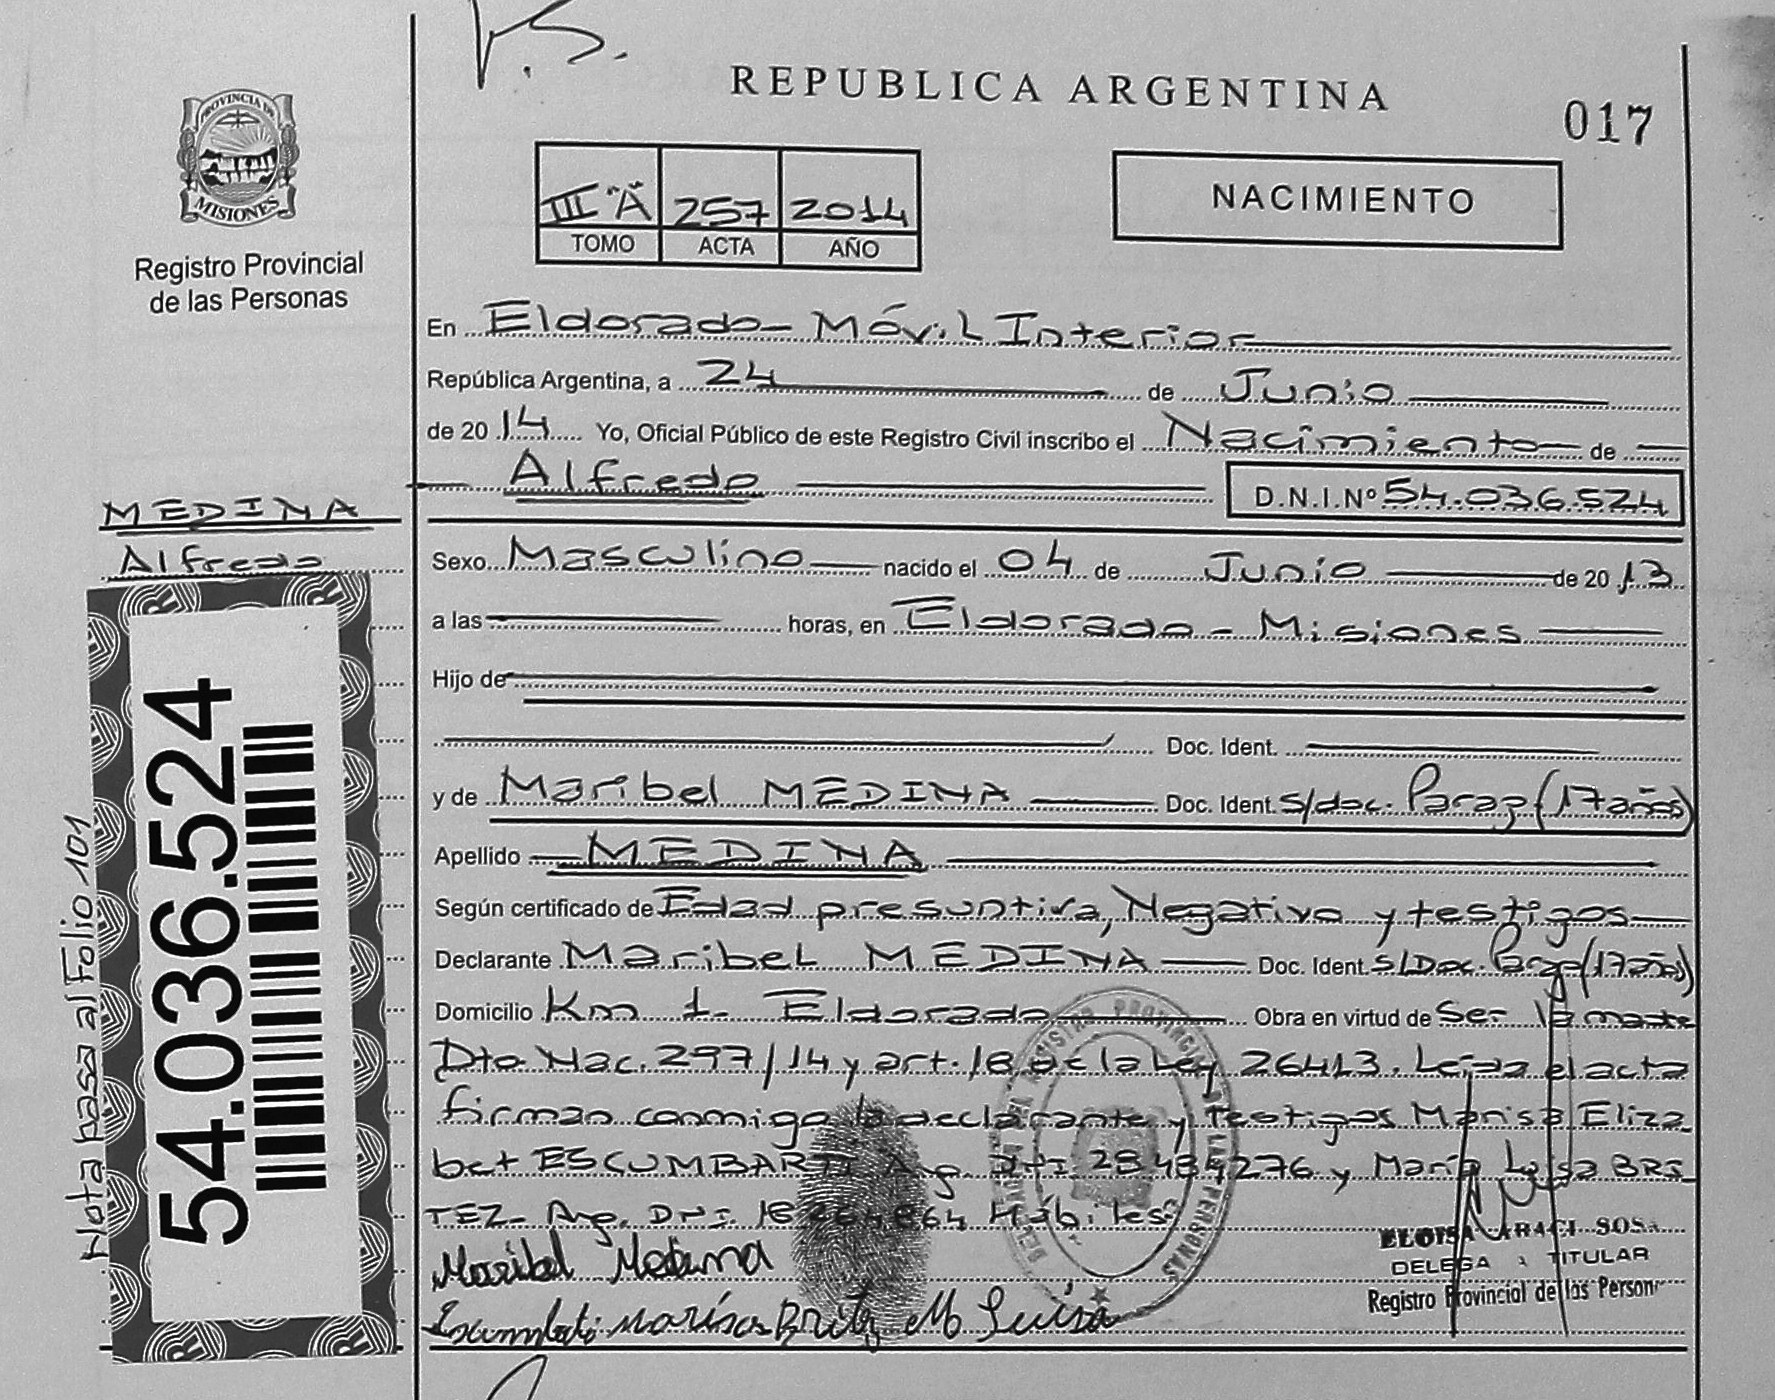 P.S.
REPUBLICA ARGENTINA
017
PROVINCIA DE
MISIONES
Registro Provincial
de las Personas
III "A" 257 2014
TOMO ACTA AÑO
NACIMIENTO
En Eldorado - Móvil Interior
República Argentina, a 24 de Junio
de 2014 Yo, Oficial Público de este Registro Civil inscribo el Nacimiento de
Alfredo D.N.I.Nº 54.036.524
MEDINA
Alfredo
Sexo Masculino nacido el 04 de Junio de 2013
a las horas, en Eldorado - Misiones
Hijo de
Doc. Ident.
y de Maribel MEDINA Doc. Ident. s/doc. Parag (17 años)
Apellido MEDINA
Según certificado de Edad presuntiva, Negativo y testigos
Declarante Maribel MEDINA Doc. Ident. s/Doc. Parag (17 años)
Domicilio Km 1- Eldorado Obra en virtud de Ser la madre
Dto Nac. 297/14 y art. 18 de la Ley 26413. Leida el acta
firman conmigo la declarante y Testigos Marisa Eliza
bet ESCUMBARTI Arg. DNI 28484276 y María Luisa BRI
TEZ- Arg. DNI. 18264864 Hábiles
Maribel Medina
Marisa Britez M Luisa
ELOISA ARACI SOSA
DELEGADA TITULAR
Registro Provincial de las Person
54.036.524
Nota pasa al Folio 101